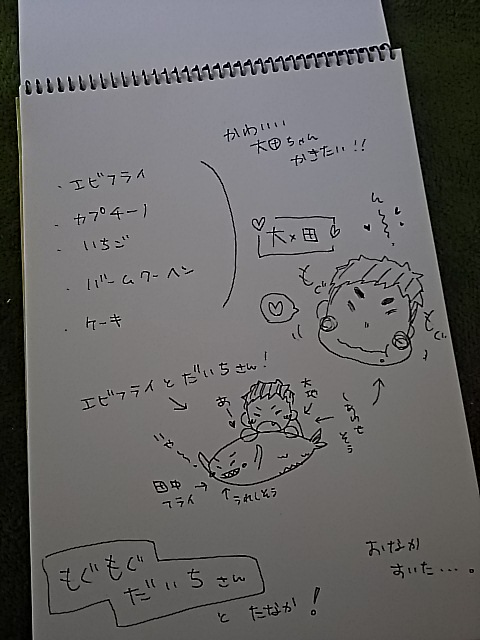 かわいい
大田ちゃん
かきたい!!
・エビフライ
・カプチーノ
・いちご
・バームクーヘン
・ケーキ
大×田
ん〜
もぐ
もぐ
エビフライとだいちさん!
あー
大地
しあわせそう
じゃーん
田中フライ
うれしそう
もぐもぐ
だいちさん
とたなか!
おなか
すいた…。